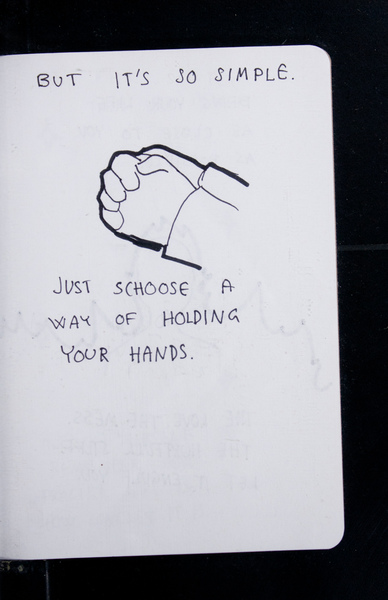 BUT IT'S SO SIMPLE.
JUST SCHOOSE A
WAY OF HOLDING
YOUR HANDS.